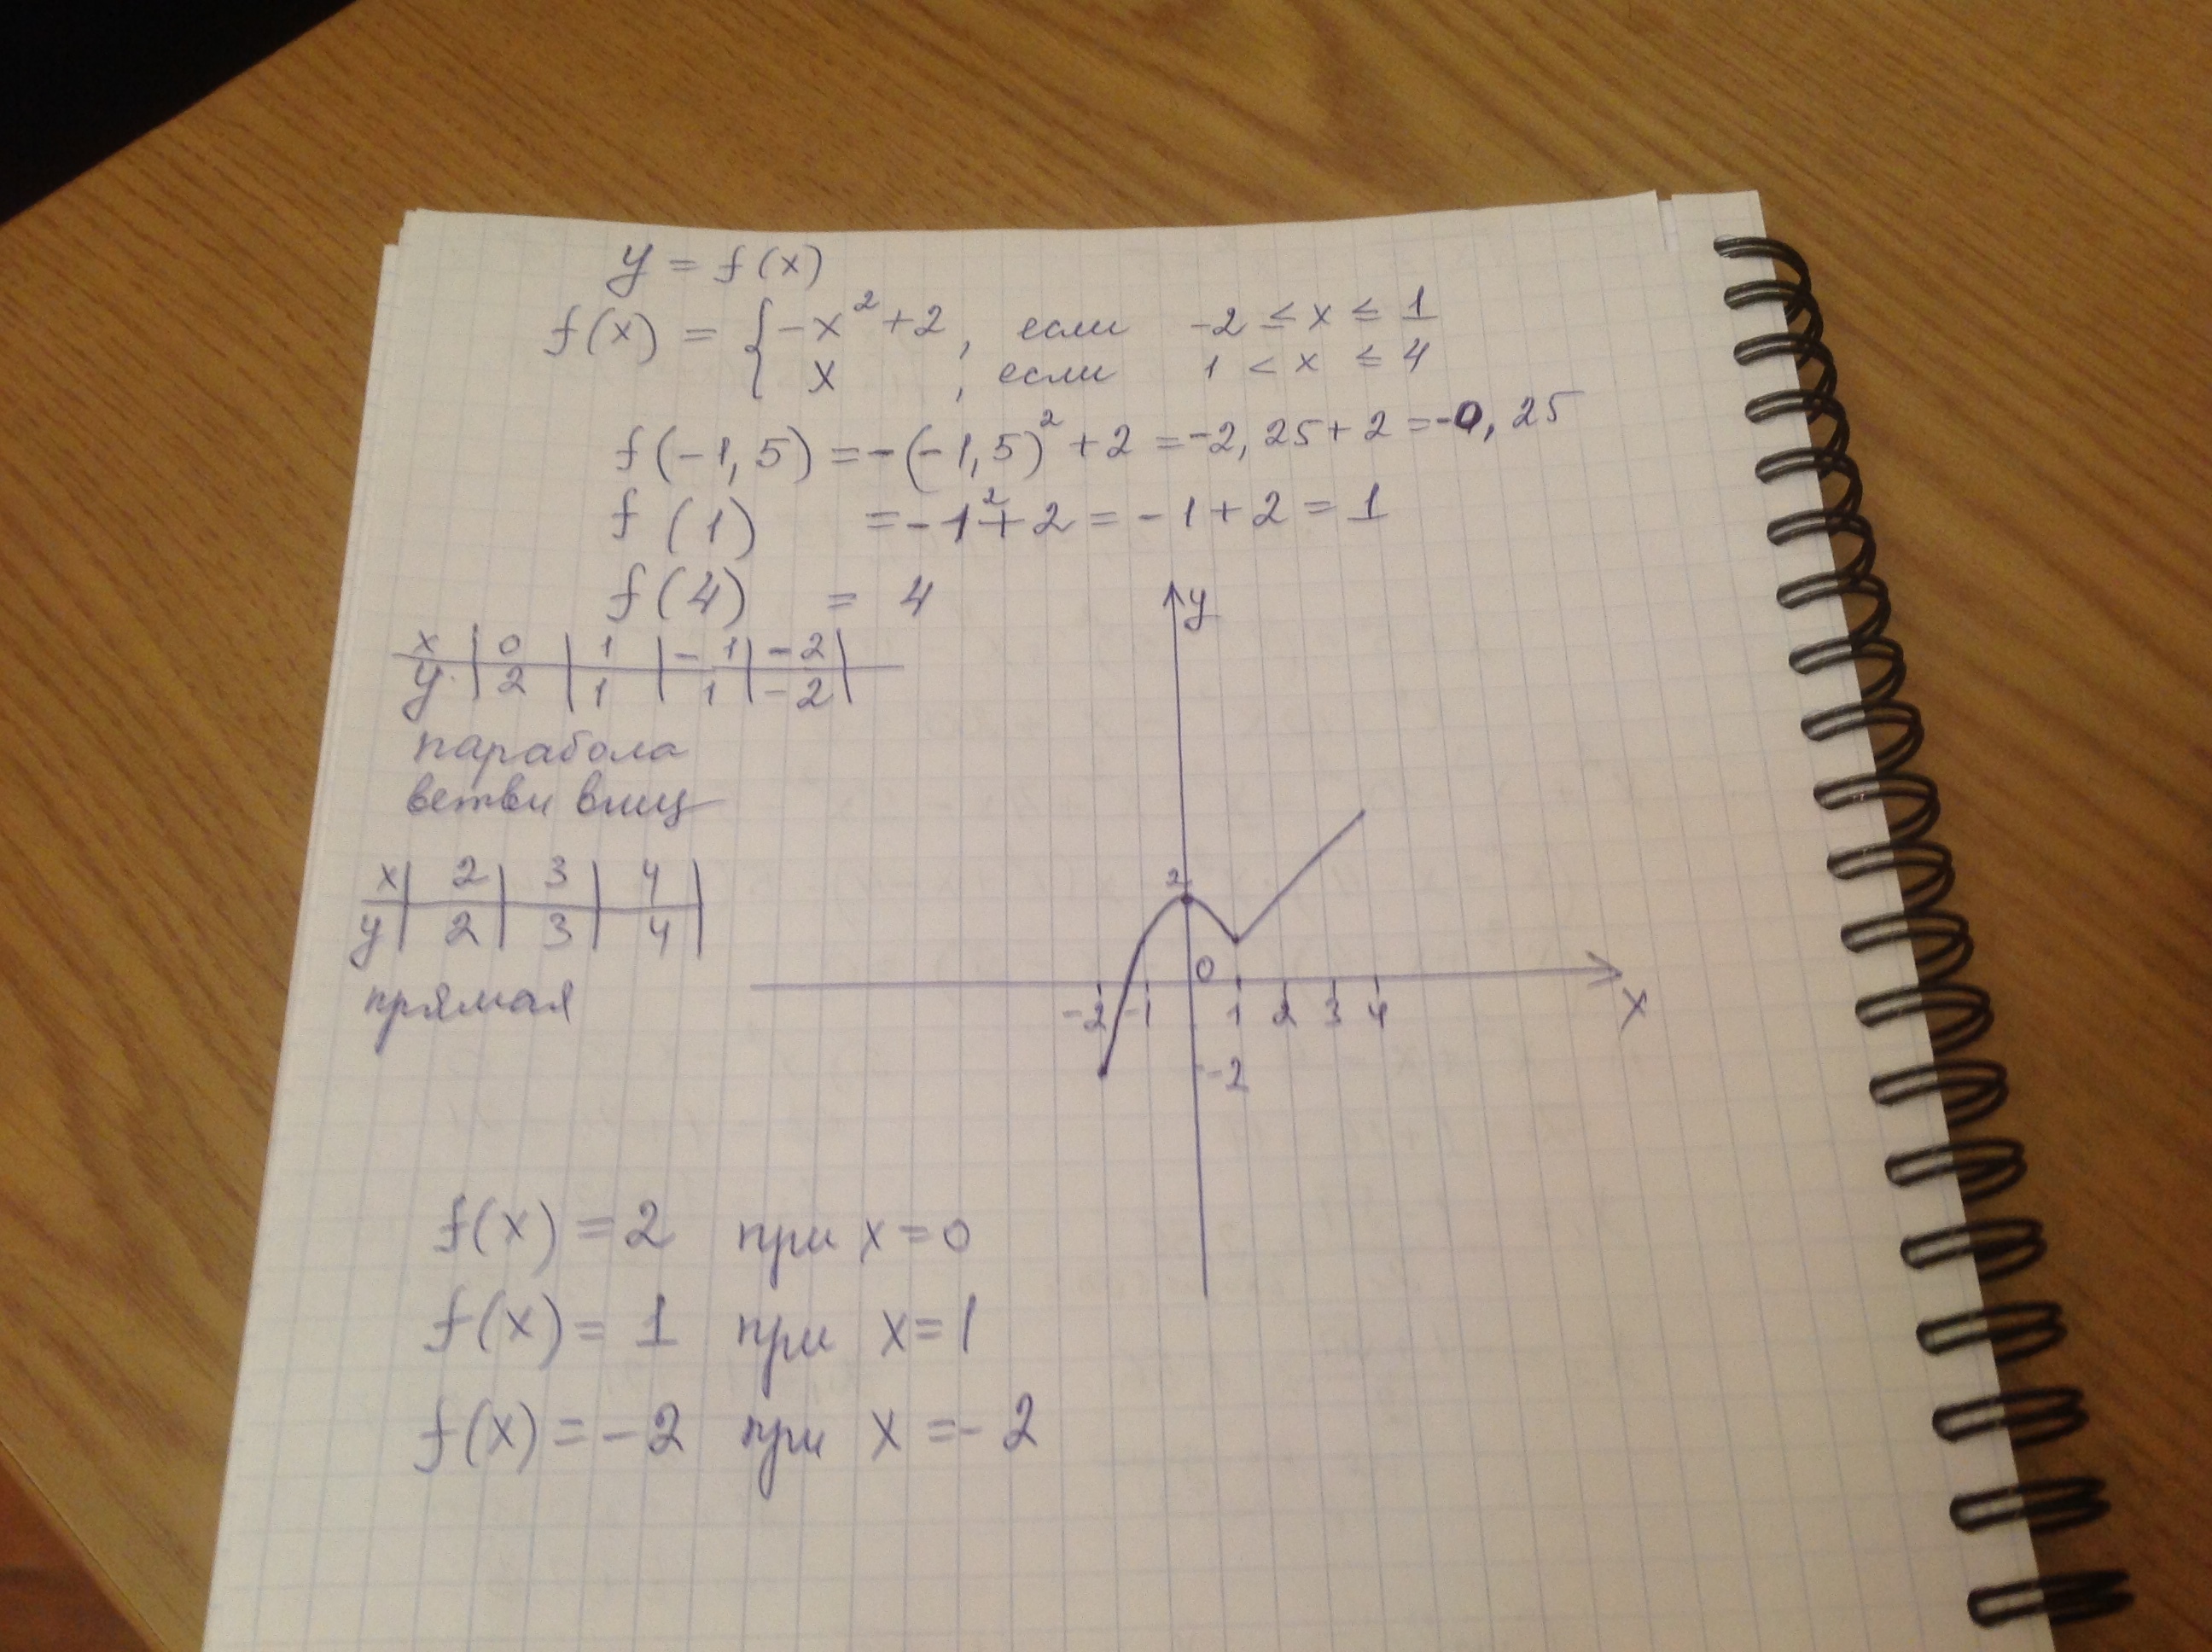 y = f(x)
f(x) = { -x² + 2, если -2 ≤ x ≤ 1
x , если 1 < x ≤ 4
f(-1,5) = -(-1,5)² + 2 = -2,25 + 2 = -0,25
f(1) = -1² + 2 = -1 + 2 = 1
f(4) = 4
x | 0 | 1 | -1 | -2 |
y | 2 | 1 | 1 | -2 |
парабола
ветви вниз
x | 2 | 3 | 4 |
y | 2 | 3 | 4 |
прямая
y
2
0
-2 -1 1 2 3 4
x
-2
f(x) = 2 при x = 0
f(x) = 1 при x = 1
f(x) = -2 при x = -2